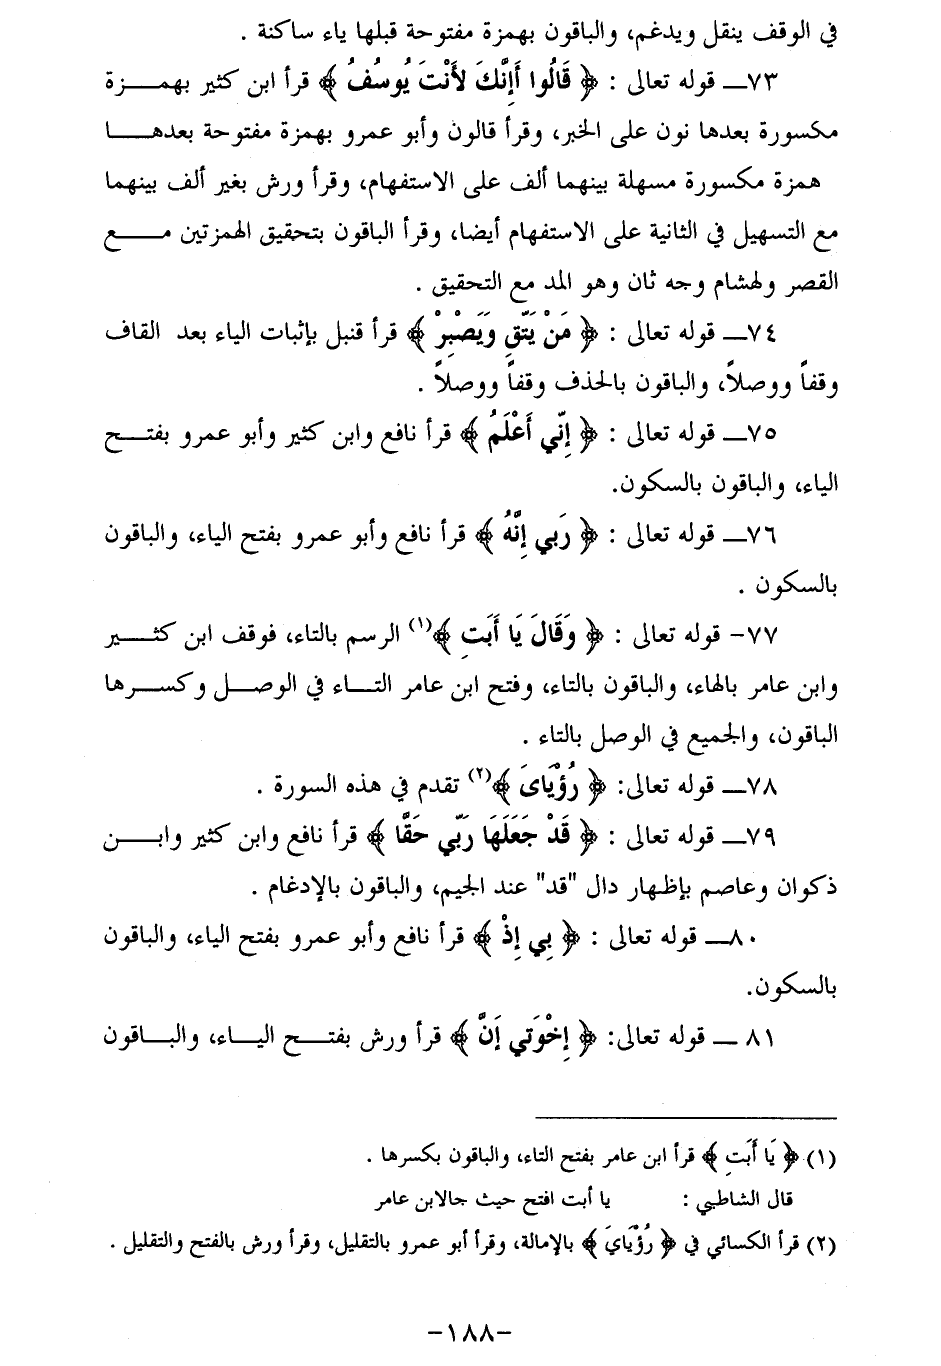 في الوقف ينقل ويدغم، والباقون بهمزة مفتوحة قبلها ياء ساكنة .
٧٣ــ قوله تعالى : ﴿ قَالُوا أَإِنَّكَ لأَنْتَ يُوسُفُ ﴾ قرأ ابن كثير بهمــــزة
مكسورة بعدها نون على الخبر، وقرأ قالون وأبو عمرو بهمزة مفتوحة بعدهـــا
همزة مكسورة مسهلة بينهما ألف على الاستفهام، وقرأ ورش بغير ألف بينهما
مع التسهيل في الثانية على الاستفهام أيضا، وقرأ الباقون بتحقيق الهمزتين مــــع
القصر ولهشام وجه ثان وهو المد مع التحقيق .
٧٤ــ قوله تعالى : ﴿ مَنْ يَتَّقِ وَيَصْبِرْ ﴾ قرأ قنبل بإثبات الياء بعد القاف
وقفاً ووصلاً، والباقون بالحذف وقفاً ووصلاً .
٧٥ــ قوله تعالى : ﴿ إِنِّي أَعْلَمُ ﴾ قرأ نافع وابن كثير وأبو عمرو بفتـــح
الياء، والباقون بالسكون.
٧٦ــ قوله تعالى : ﴿ رَبي إِنَّهُ ﴾ قرأ نافع وأبو عمرو بفتح الياء، والباقون
بالسكون .
٧٧- قوله تعالى : ﴿ وَقَالَ يَا أَبَتِ ﴾(١) الرسم بالتاء، فوقف ابن كثـــير
وابن عامر بالهاء، والباقون بالتاء، وفتح ابن عامر التـــاء في الوصـــل وكســـرها
الباقون، والجميع في الوصل بالتاء .
٧٨ــ قوله تعالى: ﴿ رُؤْيَاىَ ﴾(٢) تقدم في هذه السورة .
٧٩ــ قوله تعالى : ﴿ قَدْ جَعَلَهَا رَبِّي حَقًّا ﴾ قرأ نافع وابن كثير وابـــن
ذكوان وعاصم بإظهار دال "قد" عند الجيم، والباقون بالإدغام .
٨٠ــ قوله تعالى : ﴿ بِي إِذْ ﴾ قرأ نافع وأبو عمرو بفتح الياء، والباقون
بالسكون.
٨١ ــ قوله تعالى: ﴿ إِخْوَتي إنَّ ﴾ قرأ ورش بفتـــح اليـــاء، والبـــاقون
(١) ﴿ يَا أَبَتِ ﴾ قرأ ابن عامر بفتح التاء، والباقون بكسرها .
قال الشاطبي : يا أبت افتح حيث جالابن عامر
(٢) قرأ الكسائي في ﴿ رُؤْيَايَ ﴾ بالإمالة، وقرأ أبو عمرو بالتقليل، وقرأ ورش بالفتح والتقليل .
-١٨٨-